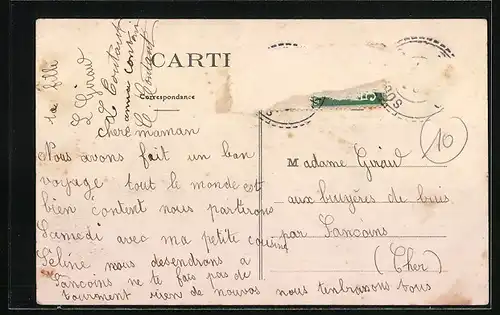 CARTE
Correspondance
chère maman
Nous avons fait un bon
voyage tout le monde est
bien content nous partirons
Samedi avec ma petite cousine
Séline nous desendrons a
Sancoins ne te fais pas de
tourment rien de nouvos nous tenbrasons tous
ta fille
L Giraud
Madame Giraud
aux bruyères de buis
par Sancoins
(Cher)
10